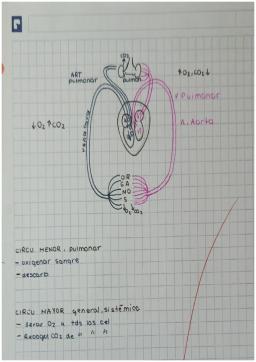 CO₂
ART
pulmonar
pulmon
↑O₂, CO₂↓
v Pulmonar
A. Aorta
↓O₂ ↑CO₂
OR
GA
NO
S
O₂ CO₂
CIRCU MENOR. pulmonar
- oxigenar sangre
- descarb
CIRCU MAYOR general, sistémica
- llevar O₂ a tds las cel
- Recoger CO₂ de " " "